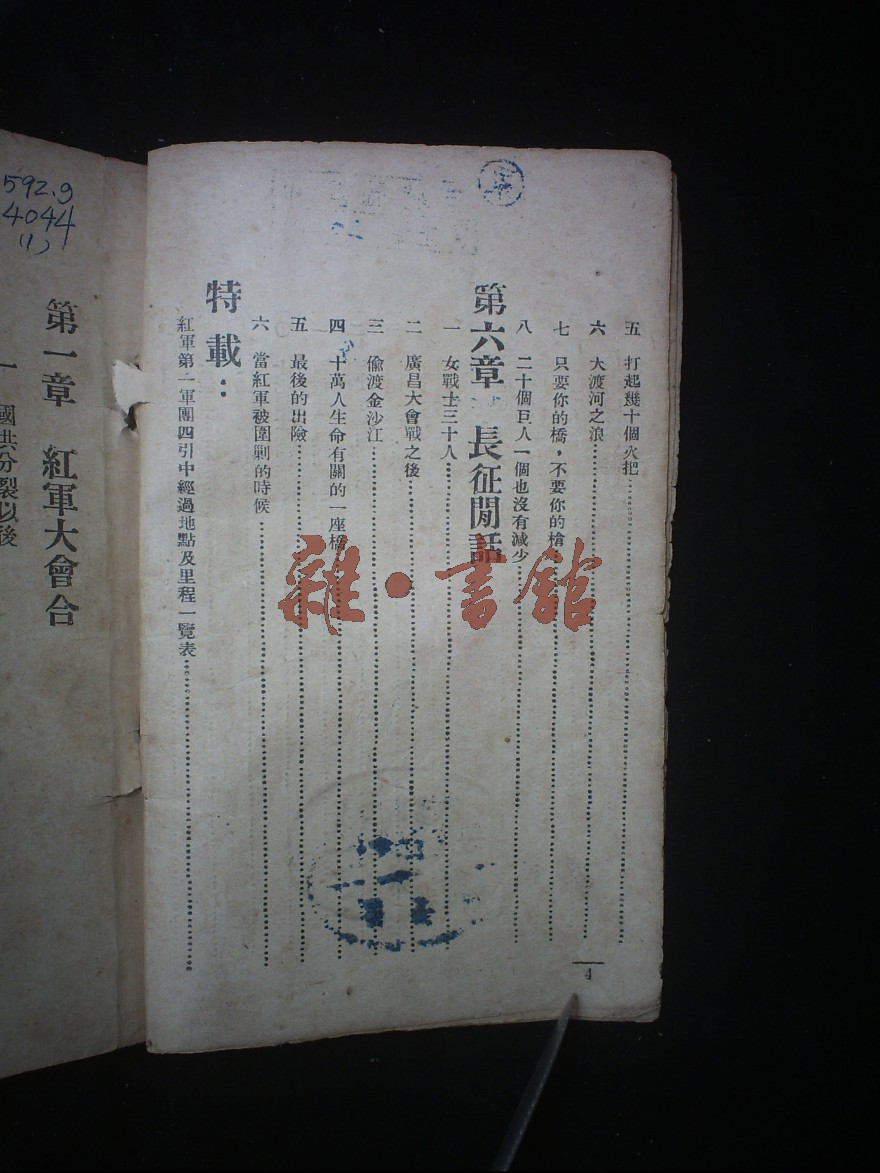 五 打起幾十個火把
六 大渡河之浪
七 只要你的橋，不要你的槍
八 二十個巨人一個也沒有減少
第六章 長征閒話
一 女戰士三十人
二 廣昌大會戰之後
三 偷渡金沙江
四 十萬人生命有關的一座橋
五 最後的出險
六 當紅軍被圍剿的時候
特載：
紅軍第一軍團西引中經過地點及里程一覽表
4
雜·書館
592.9
4044
(1)
第一章 紅軍大會合
一 國共分裂以後